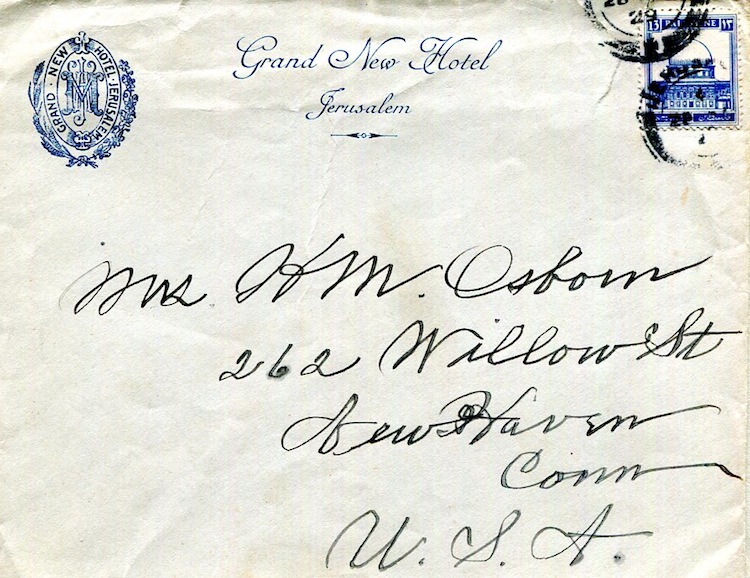 Grand New Hotel
Jerusalem
GRAND · NEW · HOTEL · JERUSALEM
13 PALESTINE ١٣
Mrs. H M. Osborn
262 Willow St
New Haven
Conn
U. S. A.